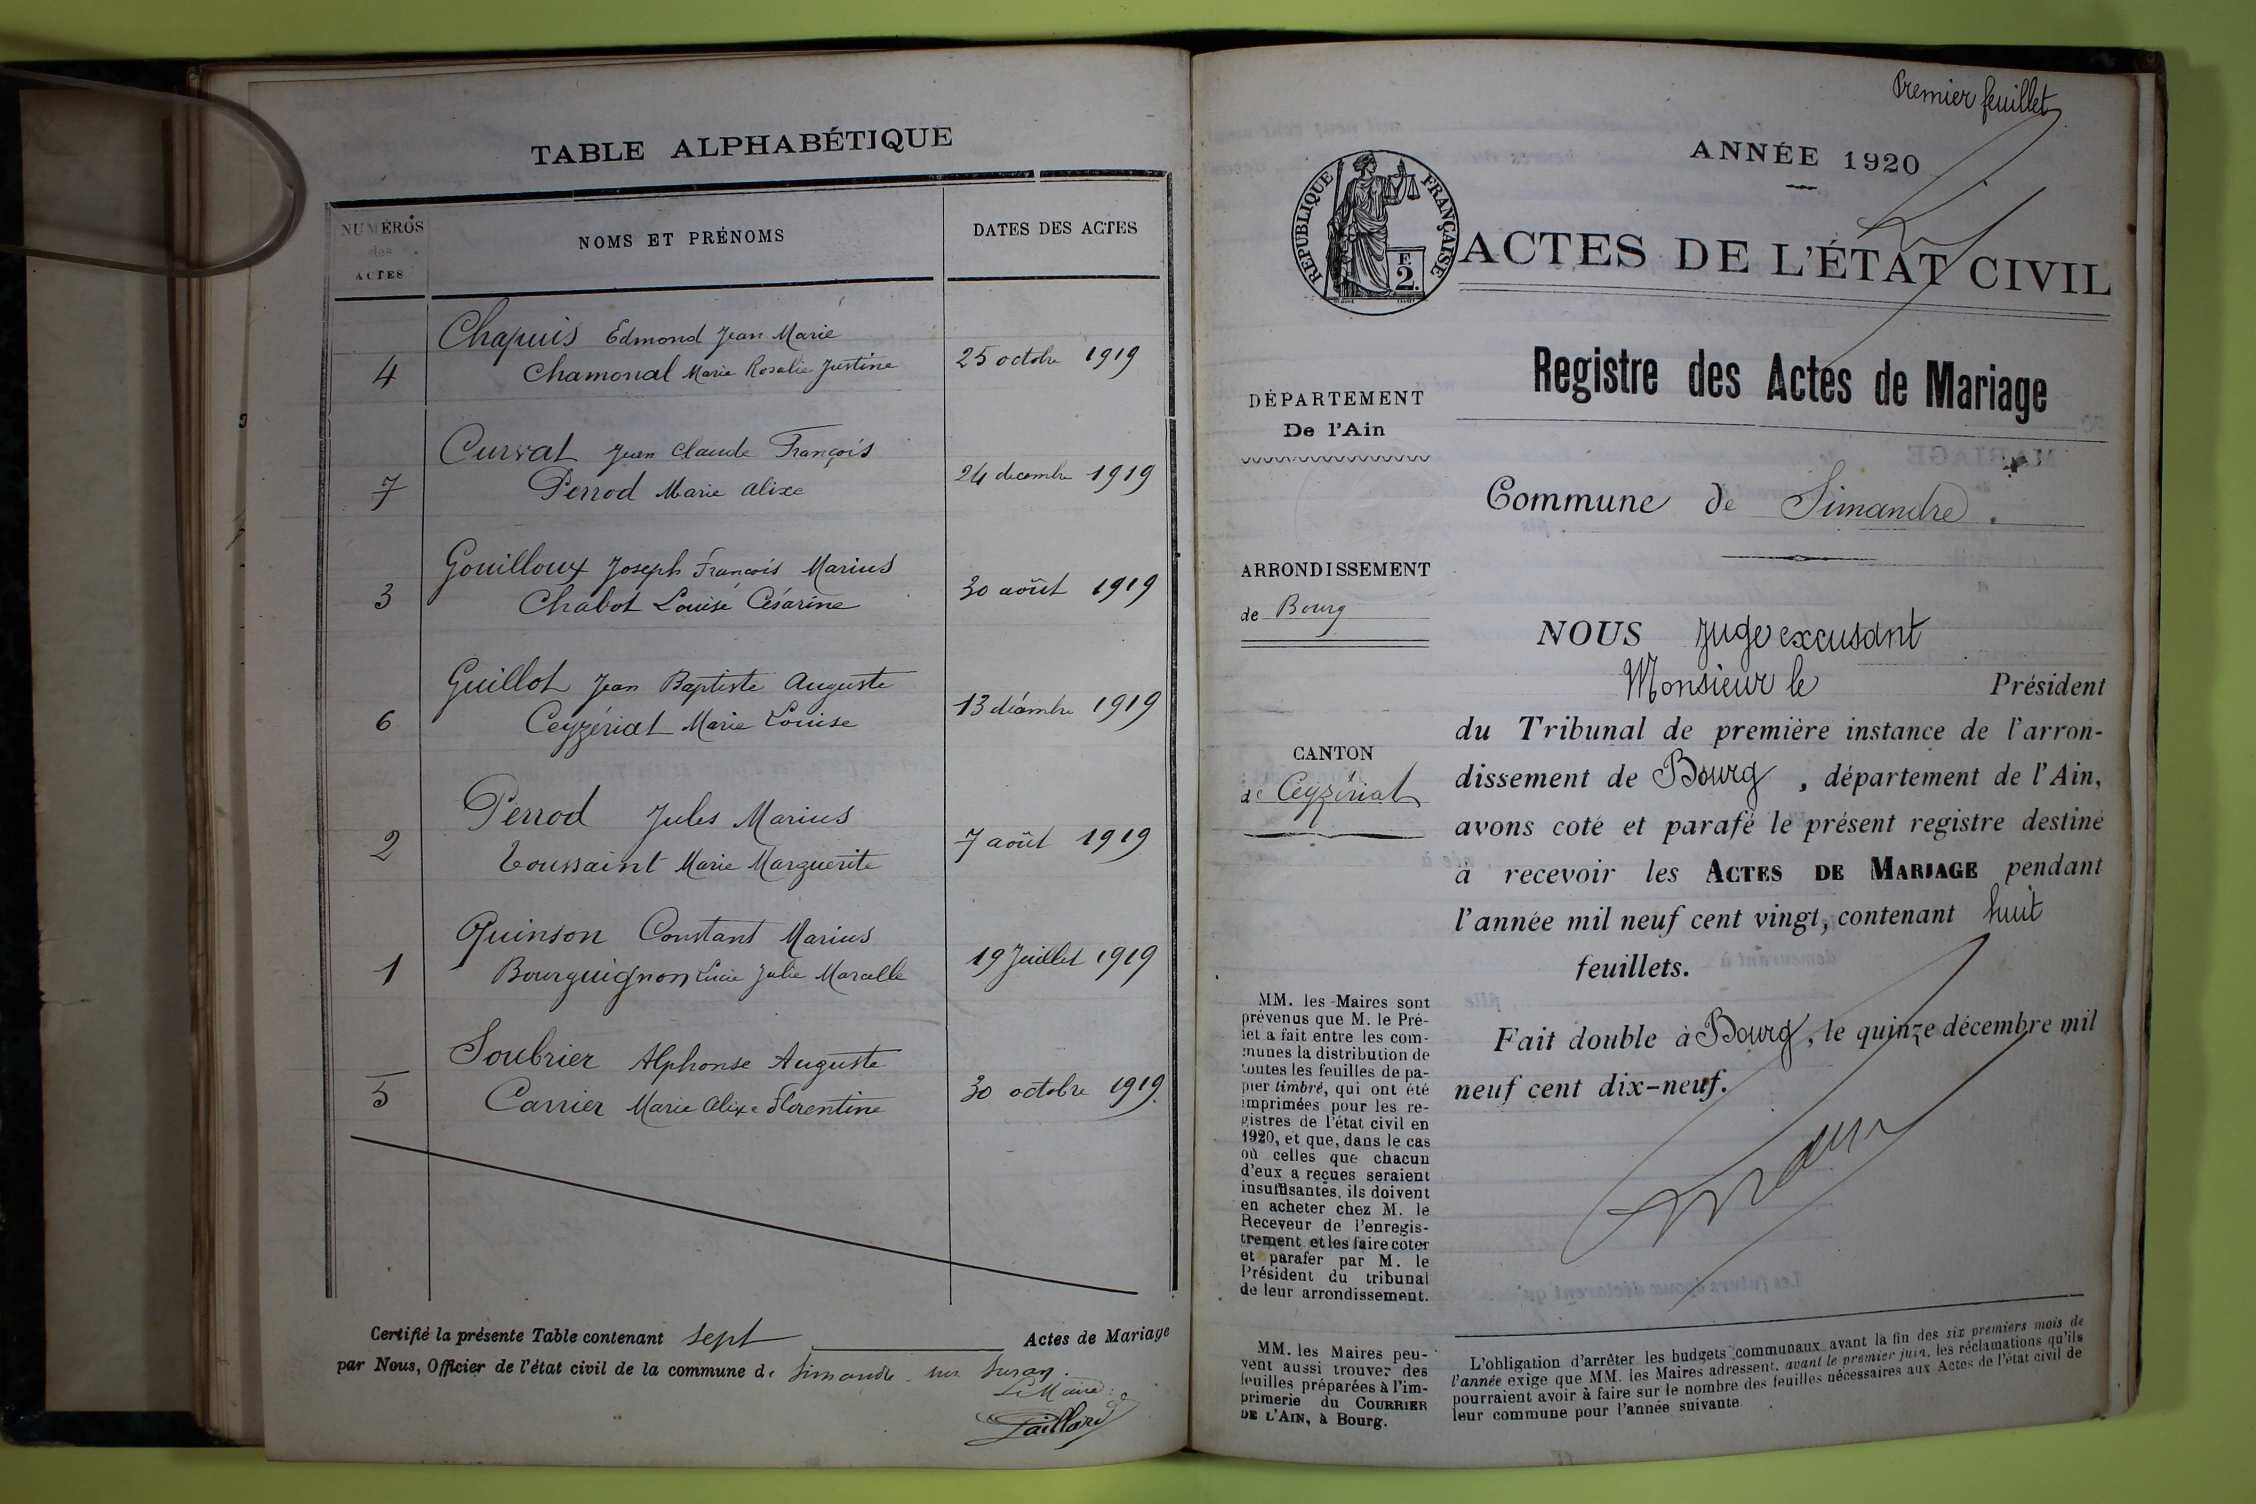 TABLE ALPHABÉTIQUE
NUMÉROS
des
ACTES
NOMS ET PRÉNOMS
DATES DES ACTES
4
Chapuis Edmond Jean Marie
Chamonal Marie Rosalie Justine
25 octobre 1919
7
Curvat Jean Claude François
Perrod Marie Alixe
24 decembre 1919
3
Gouilloux Joseph François Marius
Chabot Louise Césarine
30 août 1919
6
Guillot Jean Baptiste Auguste
Ceyzériat Marie Louise
13 décembre 1919
2
Perrod Jules Marius
Toussaint Marie Marguerite
7 août 1919
1
Quinson Constant Marius
Bourguignon Lucie Julie Marcelle
19 Juillet 1919
5
Soubrier Alphonse Auguste
Carrier Marie Alixe Florentine
30 octobre 1919
Certifié la présente Table contenant sept Actes de Mariage
par Nous, Officier de l'état civil de la commune de Simandre sur Suran.
Le Maire
Paillard
Premier feuillet
ANNÉE 1920
RÉPUBLIQUE FRANÇAISE
F.
2.
ACTES DE L'ÉTAT CIVIL
Registre des Actes de Mariage
Commune de Simandre.
DÉPARTEMENT
De l'Ain
ARRONDISSEMENT
de Bourg
CANTON
de Ceyzériat
MM. les Maires sont
prévenus que M. le Pré-
fet a fait entre les com-
munes la distribution de
toutes les feuilles de pa-
pier timbré, qui ont été
imprimées pour les re-
gistres de l'état civil en
1920, et que, dans le cas
où celles que chacun
d'eux a reçues seraient
insuffisantes, ils doivent
en acheter chez M. le
Receveur de l'enregis-
trement et les faire coter
et parafer par M. le
Président du tribunal
de leur arrondissement.
MM. les Maires peu-
vent aussi trouver des
feuilles préparées à l'im-
primerie du COURRIER
DE L'AIN, à Bourg.
NOUS Juge excusant
Monsieur le Président
du Tribunal de première instance de l'arron-
dissement de Bourg, département de l'Ain,
avons coté et parafé le présent registre destiné
à recevoir les ACTES DE MARIAGE pendant
l'année mil neuf cent vingt, contenant huit
feuillets.
Fait double à Bourg, le quinze décembre mil
neuf cent dix-neuf.
L'obligation d'arrêter les budgets communaux avant la fin des six premiers mois de
l'année exige que MM. les Maires adressent, avant le premier juin, les réclamations qu'ils
pourraient avoir à faire sur le nombre des feuilles nécessaires aux Actes de l'état civil de
leur commune pour l'année suivante